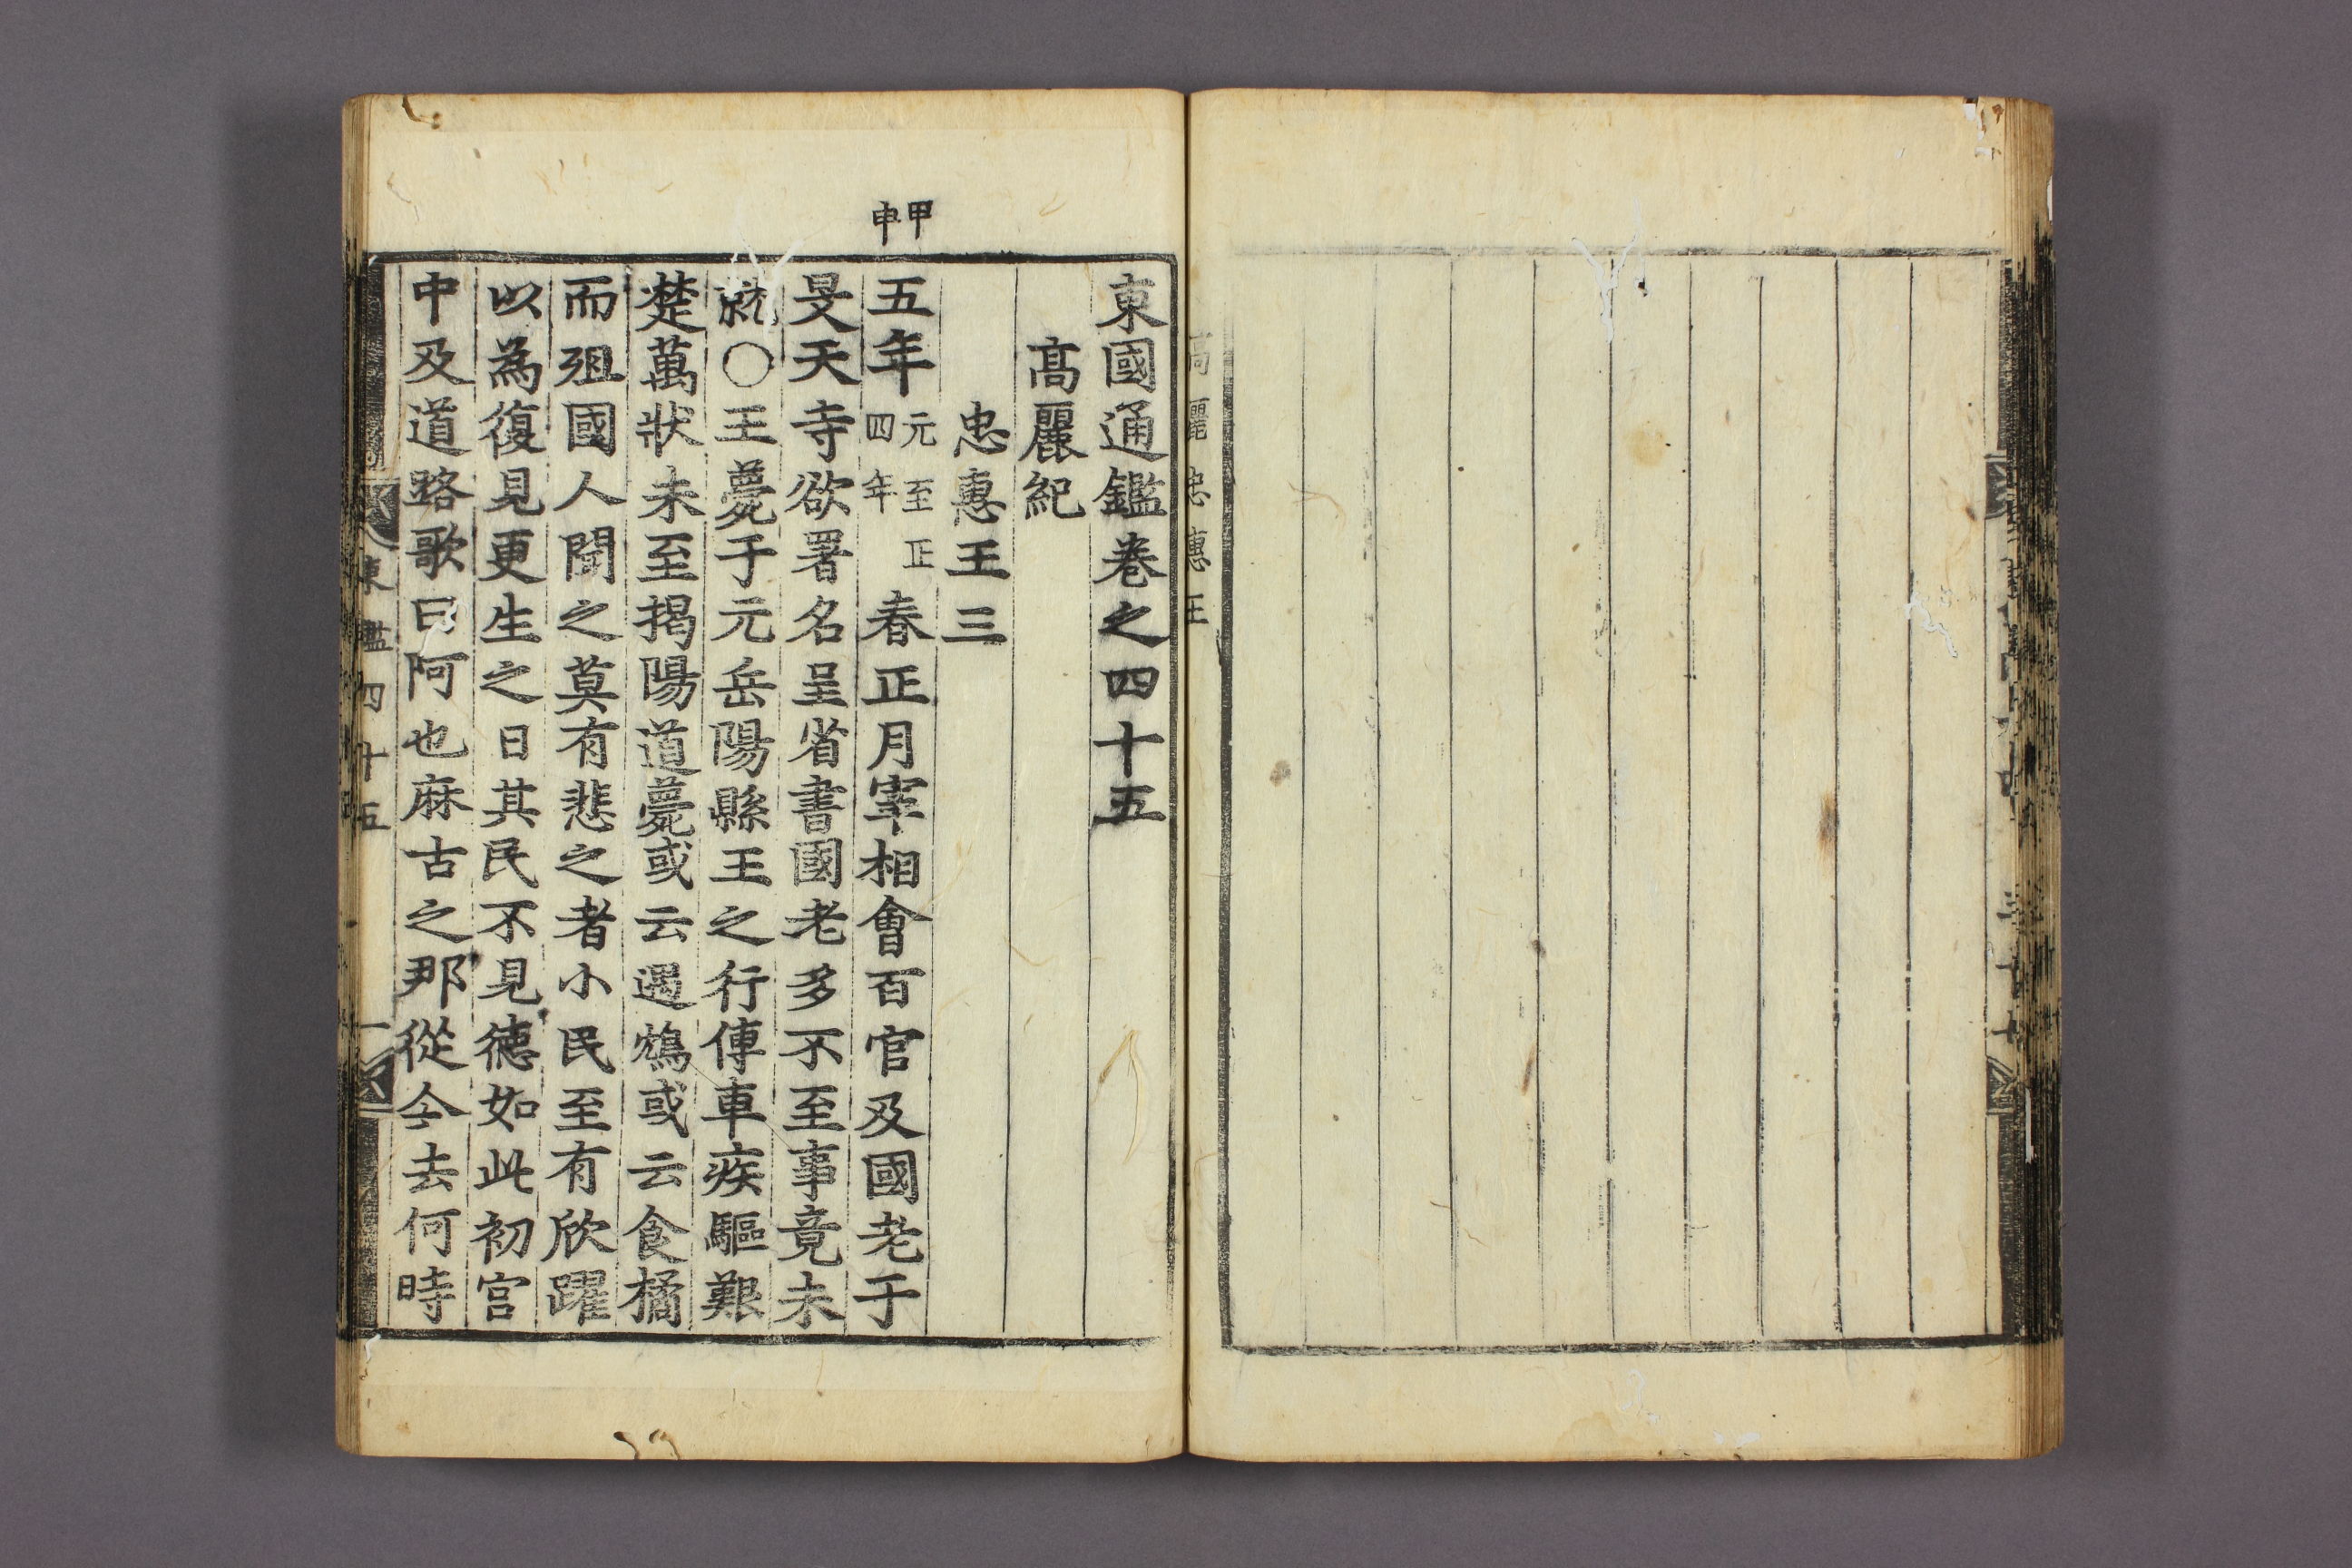 東國通鑑卷之四十五
高麗紀
忠惠王三
甲申
五年元至正四年春正月宰相會百官及國老于
旻天寺欲署名呈省書國老多不至事竟未
就○王薨于元岳陽縣王之行傳車疾驅艱
楚萬狀未至揭陽道薨或云遇鴆或云食橘
而殂國人聞之莫有悲之者小民至有欣躍
以為復見更生之日其民不見德如此初宮
中及道路歌曰阿也麻古之那從今去何時
東鑑四十五
一
高麗忠惠王